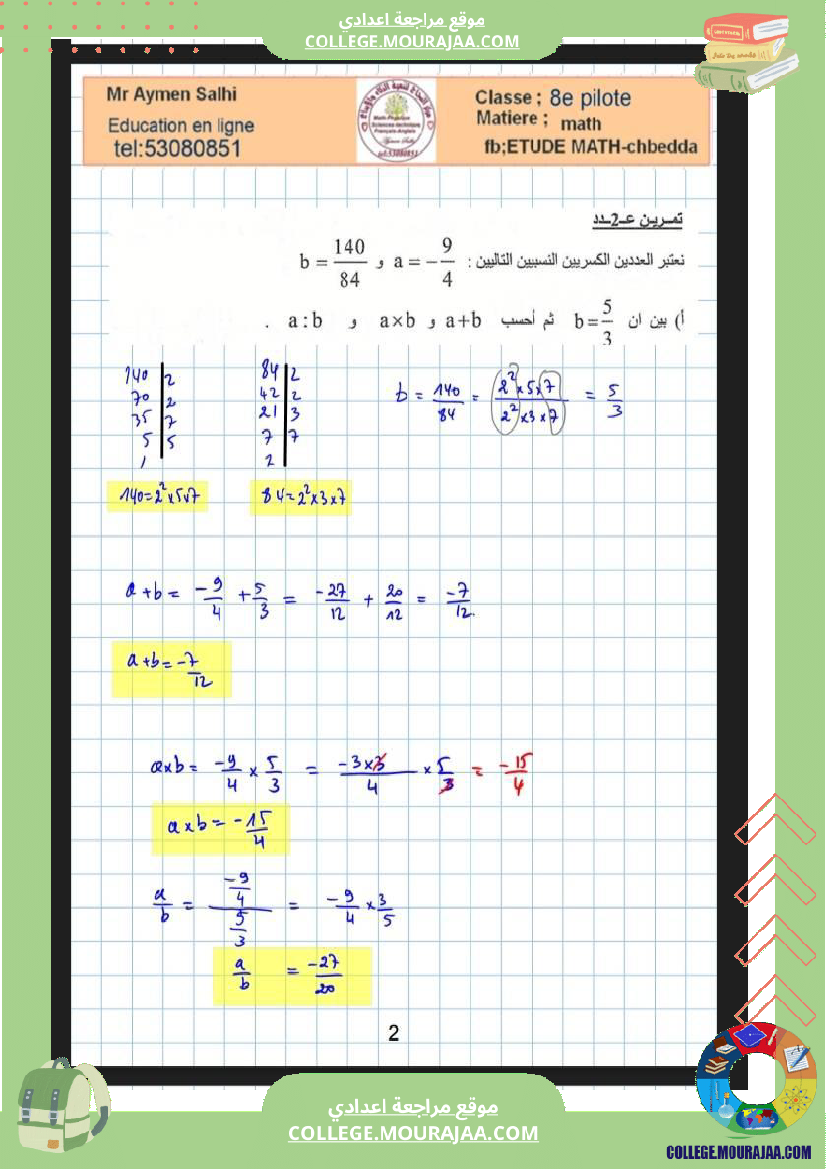 موقع مراجعة اعدادي
COLLEGE.MOURAJAA.COM
Mr Aymen Salhi
Education en ligne
tel:53080851
Classe ; 8e pilote
Matiere ; math
fb;ETUDE MATH-chbedda
تمرين عـ2ـدد
نعتبر العددين الكسريين النسبيين التاليين : a = -9/4 و b = 140/84
أ) بين ان b=5/3 ثم أحسب a+b و a×b و a:b .
140 | 2
70 | 2
35 | 7
5 | 5
1
140=2²×5×7
84 | 2
42 | 2
21 | 3
7 | 7
2
84=2²×3×7
b = 140/84 = (2²×5×7)/(2²×3×7) = 5/3
a+b = -9/4 + 5/3 = -27/12 + 20/12 = -7/12
a+b = -7/12
a×b = -9/4 × 5/3 = (-3×3)/4 × 5/3 = -15/4
a×b = -15/4
a/b = (-9/4)/(5/3) = -9/4 × 3/5
a/b = -27/20
2
موقع مراجعة اعدادي
COLLEGE.MOURAJAA.COM
COLLEGE.MOURAJAA.COM